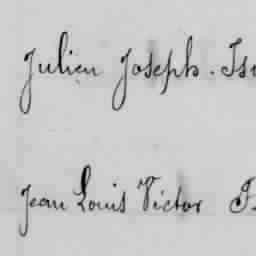 Julien Joseph. Is
Jean Louis Victor